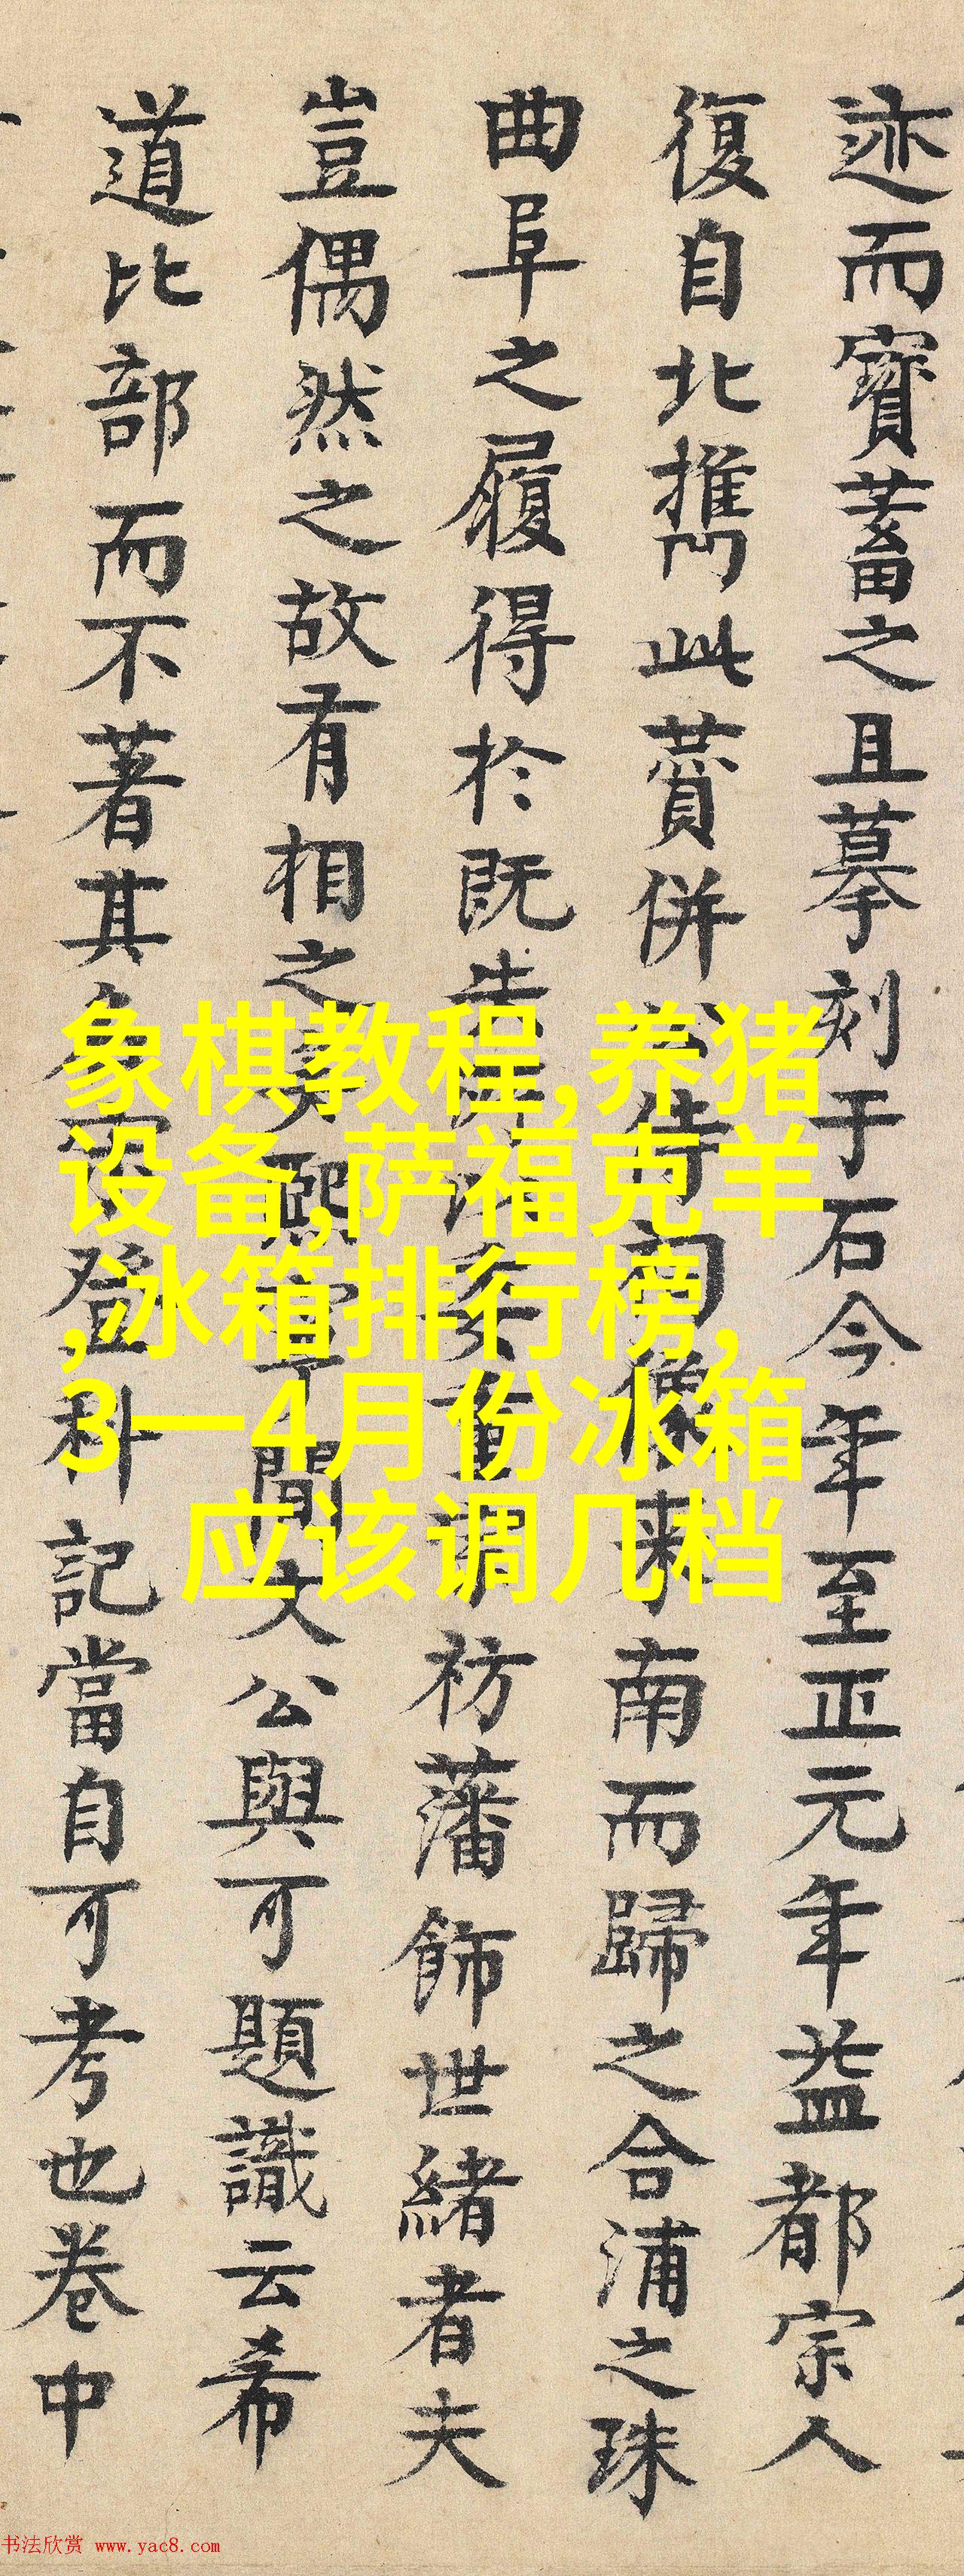 迹而寳蓄之且摹刻于石今年至正元年益都宗人
復自北擕此賛併像来南而歸之合浦之珠
曲阜之履得於既失祊藩飾世緒者夫
豈偶然之故有相之熙間文公與可題識云希
道比部而不著其登科記當自可考也卷中
象棋教程,养猪
设备,萨福克羊
,冰箱排行榜,
3一4月份冰箱
应该调几档
书法欣赏 www.yac8.com